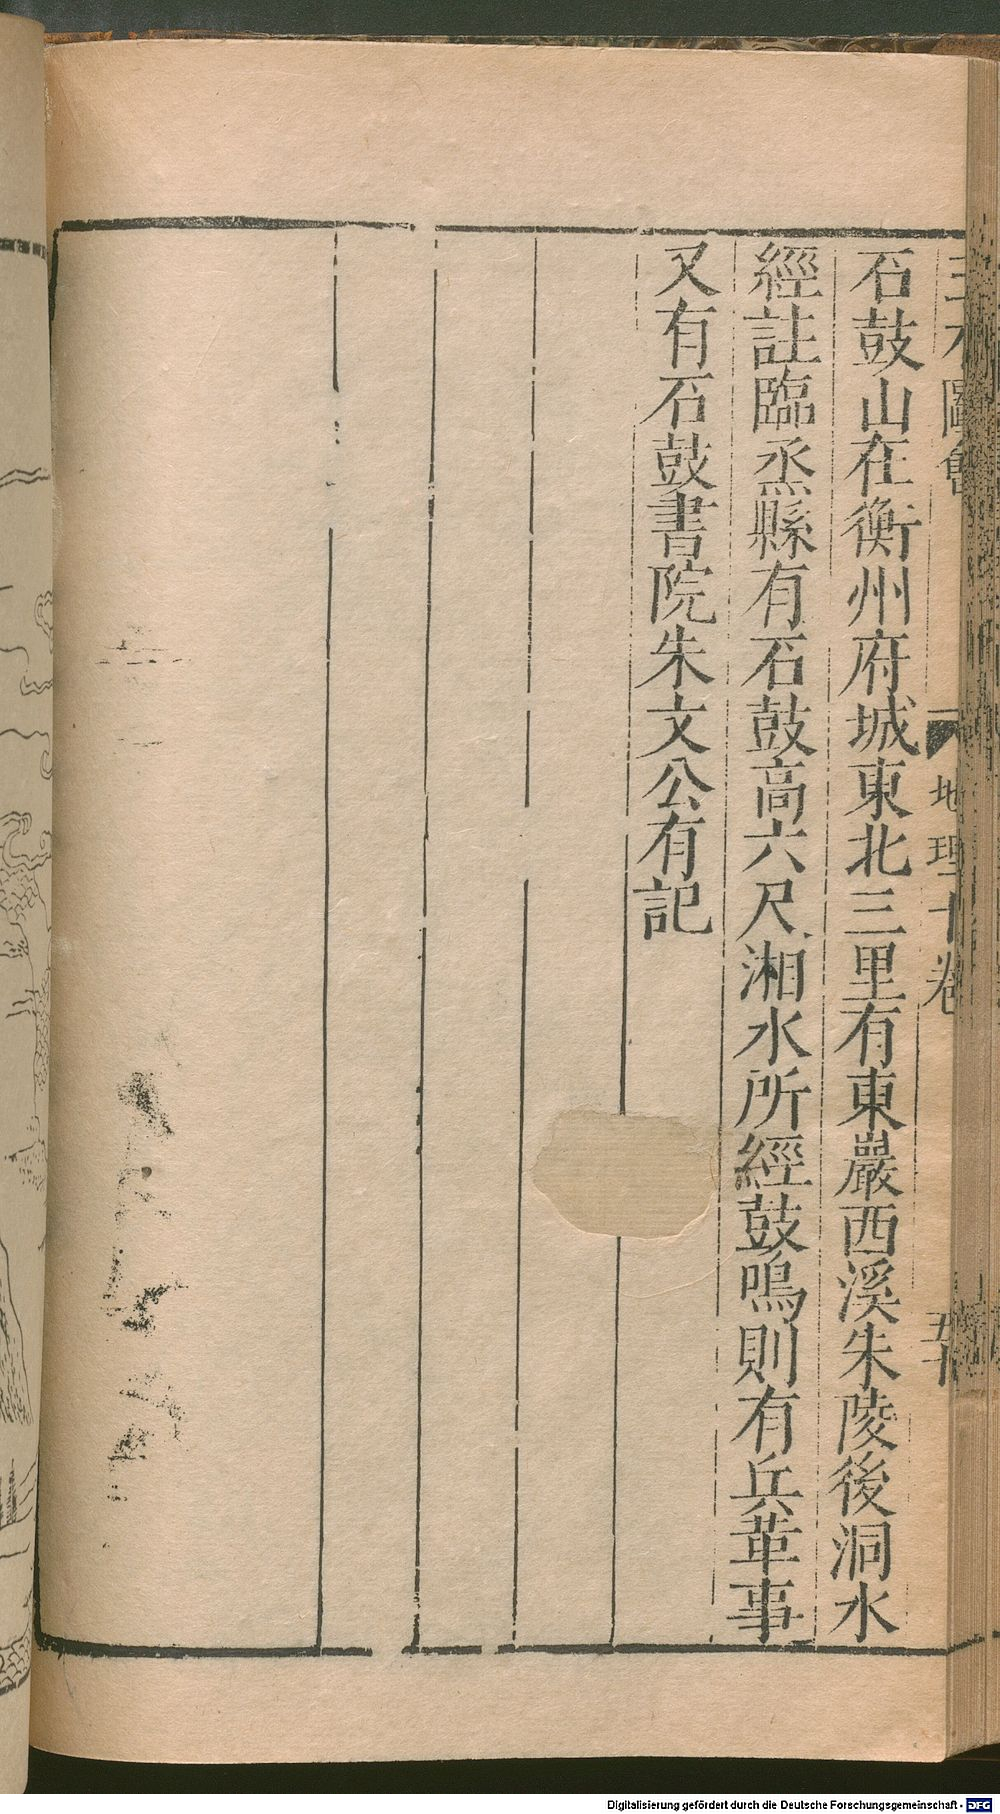 圖會
地理十卷
石鼓山在衡州府城東北三里有東巖西溪朱陵後洞水
經註臨烝縣有石鼓高六尺湘水所經鼓鳴則有兵革事
又有石鼓書院朱文公有記
Digitalisierung gefördert durch die Deutsche Forschungsgemeinschaft - DFG